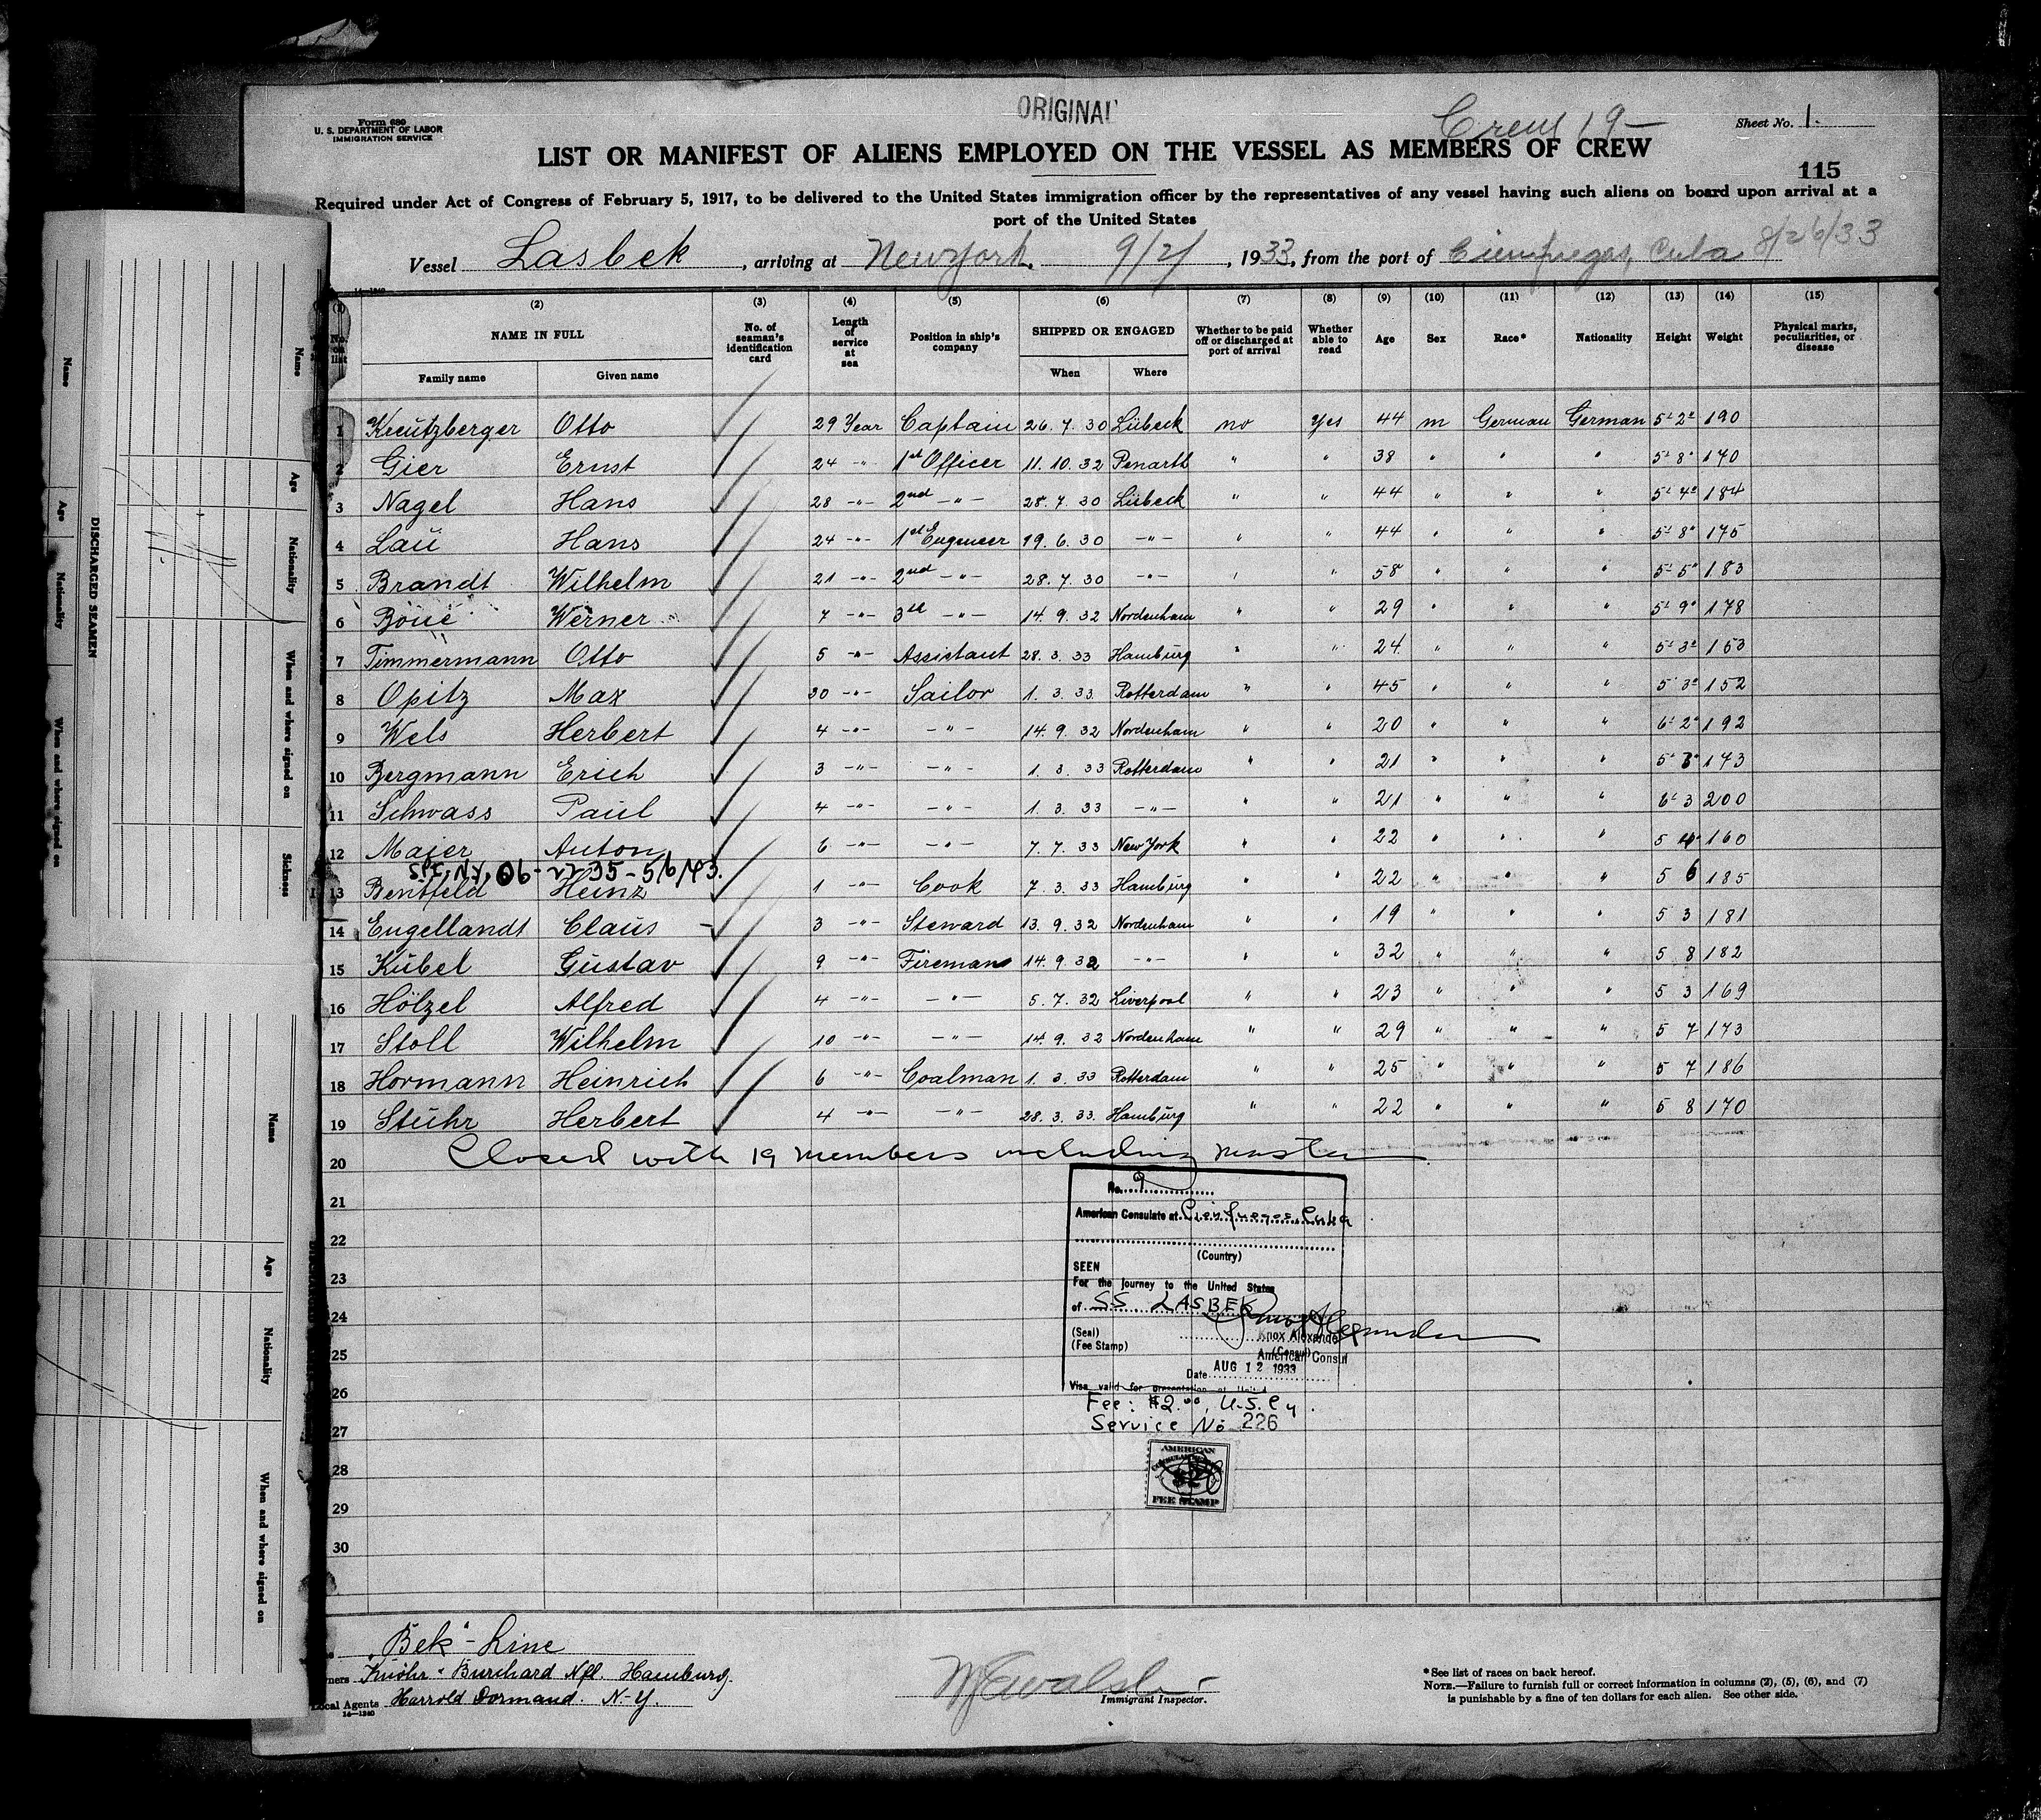 ORIGINAL
Crew 19 -
Sheet No. 1.
Form 680
U. S. DEPARTMENT OF LABOR
IMMIGRATION SERVICE
LIST OR MANIFEST OF ALIENS EMPLOYED ON THE VESSEL AS MEMBERS OF CREW
115
Required under Act of Congress of February 5, 1917, to be delivered to the United States immigration officer by the representatives of any vessel having such aliens on board upon arrival at a
port of the United States
Vessel Lasbek, arriving at New York. 9/2/, 1933, from the port of Cienfuegos, Cuba 8/26/33
14—1240
(1) (2) (3) (4) (5) (6) (7) (8) (9) (10) (11) (12) (13) (14) (15)
No. on list NAME IN FULL No. of seaman's identification card Length of service at sea Position in ship's company SHIPPED OR ENGAGED Whether to be paid off or discharged at port of arrival Whether able to read Age Sex Race* Nationality Height Weight Physical marks, peculiarities, or disease
Family name Given name When Where
1 Kreutzberger Otto 29 Year Captain 26. 7. 30 Lübeck no Yes 44 m German German 5' 2" 190
2 Gier Ernst 24 -"- 1st Officer 11. 10. 32 Penarth " " 38 " " " 5' 8" 170
3 Nagel Hans 28 -"- 2nd -"- 28. 7. 30 Lübeck " " 44 " " " 5' 4" 184
4 Lau Hans 24 -"- 1st Engeneer 19. 6. 30 -"- " " 44 " " " 5' 8" 175
5 Brandt Wilhelm 21 -"- 2nd -"- 28. 7. 30 -"- " " 58 " " " 5' 5" 183
6 Werner 7 -"- 3rd -"- 14. 9. 32 Nordenham " " 29 " " " 5' 9" 178
7 Timmermann Otto 5 -"- Assistant 28. 3. 33 Hamburg " " 24 " " " 5' 3" 153
8 Opitz Max 30 -"- Sailor 1. 3. 33. Rotterdam " " 45 " " " 5' 3" 152
9 Wels Herbert 4 -"- -"- 14. 9. 32 Nordenham " " 20 " " " 6' 2" 192
10 Bergmann Erich 3 -"- -"- 1. 3. 33 Rotterdam " " 21 " " " 5' 3" 173
11 Schwass Paul 4 -"- -"- 1. 3. 33 -"- " " 21 " " " 6' 3 200
12 Majer Anton 6 -"- -"- 7. 7. 33 New York " " 22 " " " 5 4" 160
13 Benfeld Heinz 1 -"- Cook 7. 3. 33 Hamburg " " 22 " " " 5 6 185
14 Engellandt Claus 3 -"- Steward 13. 9. 32 Nordenham " " 19 " " " 5 3 181
15 Kübel Gustav 9 -"- Fireman 14. 9. 32 -"- " " 32 " " " 5 8 182
16 Hölzel Alfred 4 -"- -"- 5. 7. 32 Liverpool " " 23 " " " 5 3 169
17 Stoll Wilhelm 10 -"- -"- 14. 9. 32 Nordenham " " 29 " " " 5 7 173
18 Hormann Heinrich 6 -"- Coalman 1. 3. 33 Rotterdam " " 25 " " " 5 7 186
19 Stuhr Herbert 4 -"- -"- 28. 3. 33. Hamburg " " 22 " " " 5 8 170
20 Closed with 19 members including master
21
22
23
24
25
26
27
28
29
30
No. 9
American Consulate at Cienfuegos, Cuba
(Country)
SEEN
For the journey to the United States
of SS LASBEK
Knox Alexander
(Seal) (Consul)
(Fee Stamp) American Consul
Date AUG 12 1933
Visa valid for presentation at United
Fee: $2.00, U.S. Cy.
Service No. 226
AMERICAN
CONSULAR SERVICE
$2
FEE STAMP
"Bek"-Line
Owners Knöhr & Burchard Nfl. Hamburg.
Local Agents Harrold Dormand. N-Y.
14—1240
Immigrant Inspector.
*See list of races on back hereof.
NOTE.—Failure to furnish full or correct information in columns (2), (5), (6), and (7)
is punishable by a fine of ten dollars for each alien. See other side.
DISCHARGED SEAMEN
Name
Age
Nationality
When and where signed on
Name
Age
Nationality
When and where signed on
Sickness
Name
Age
Nationality
When and where signed on